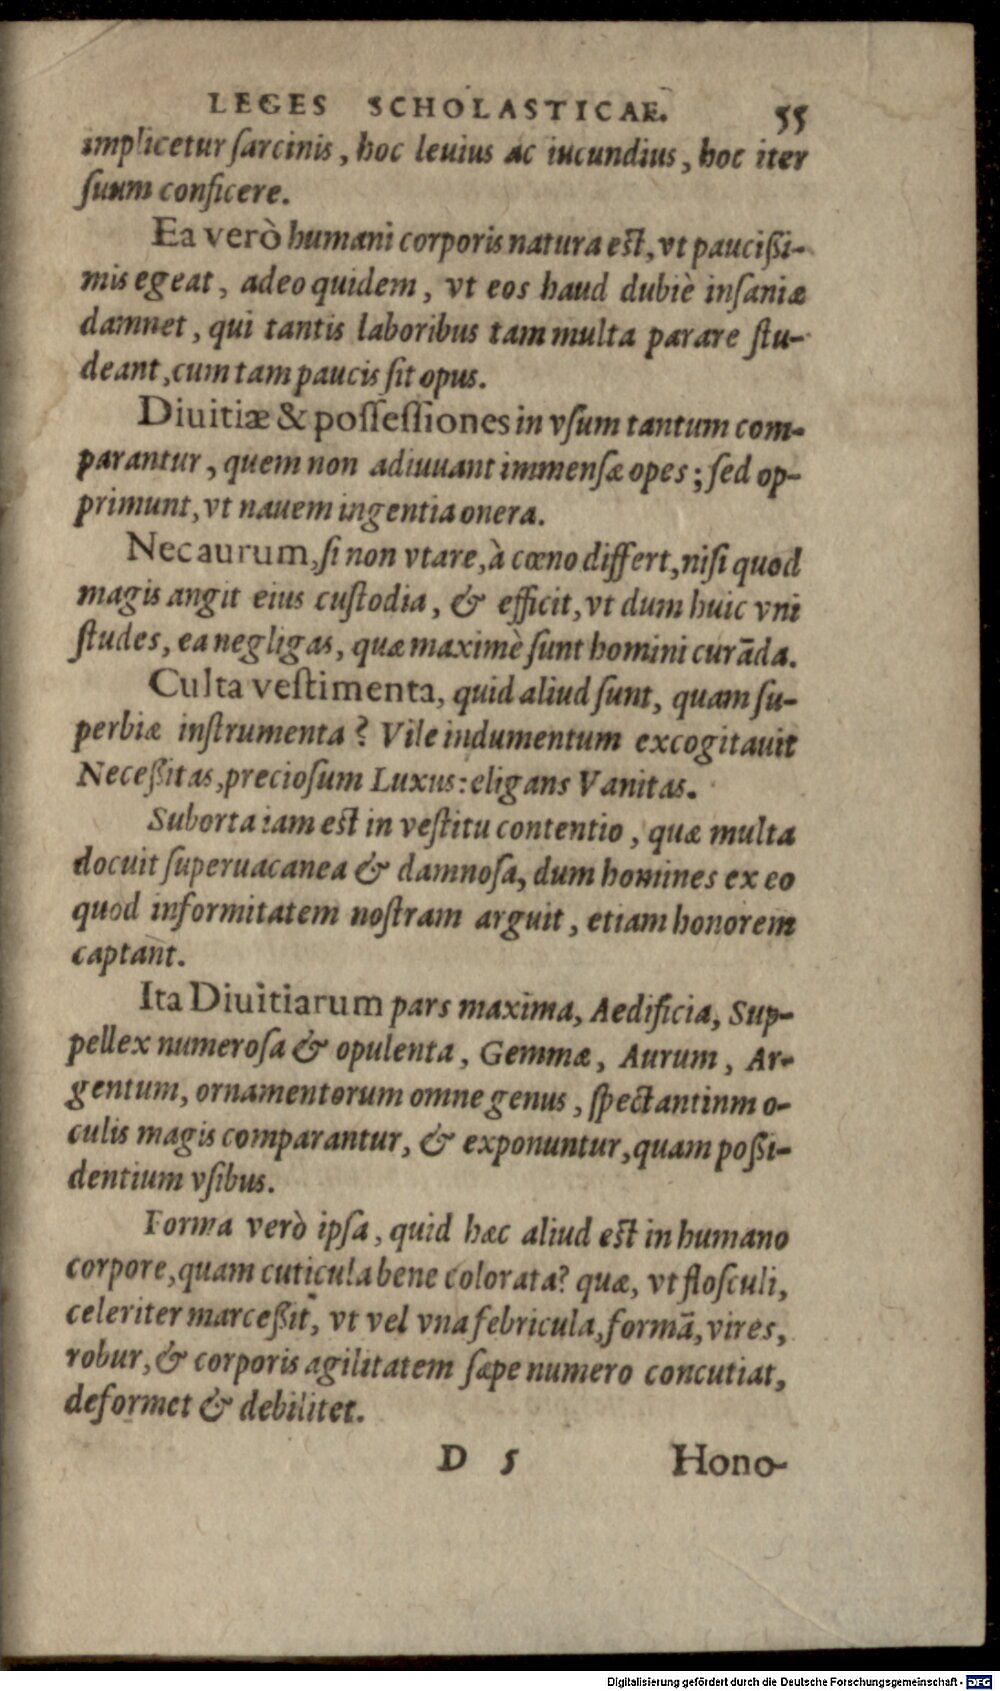 LEGES SCHOLASTICAE. 55
implicetur ſarcinis, hoc leuius ac iucundius, hoc iter
ſuum conficere.
Ea verò humani corporis natura est, vt pauciſsi-
mis egeat, adeo quidem, vt eos haud dubiè inſaniæ
damnet, qui tantis laboribus tam multa parare ſtu-
deant, cum tam paucis ſit opus.
Diuitiæ & poſſeſſiones in vſum tantum com-
parantur, quem non adiuuant immenſæ opes; ſed op-
primunt, vt nauem ingentia onera.
Nec aurum, ſi non vtare, à cœno differt, niſi quod
magis angit eius cuſtodia, & efficit, vt dum huic vni
ſtudes, ea negligas, quæ maximè ſunt homini curāda.
Culta veſtimenta, quid aliud ſunt, quam ſu-
perbiæ inſtrumenta? Vile indumentum excogitauit
Neceßitas, precioſum Luxus: eligans Vanitas.
Suborta iam est in veſtitu contentio, quæ multa
docuit ſuperuacanea & damnoſa, dum homines ex eo
quod informitatem noſtram arguit, etiam honorem
captant.
Ita Diuitiarum pars maxima, Aedificia, Sup-
pellex numeroſa & opulenta, Gemmæ, Aurum, Ar-
gentum, ornamentorum omne genus, ſpectantinm o-
culis magis comparantur, & exponuntur, quam poßi-
dentium vſibus.
Forma verò ipſa, quid hæc aliud est in humano
corpore, quam cuticula bene colorata? quæ, vt floſculi,
celeriter marceßit, vt vel vna febricula, formā, vires,
robur, & corporis agilitatem ſæpe numero concutiat,
deformet & debilitet.
D 5 Hono-
Digitalisierung gefördert durch die Deutsche Forschungsgemeinschaft - DFG